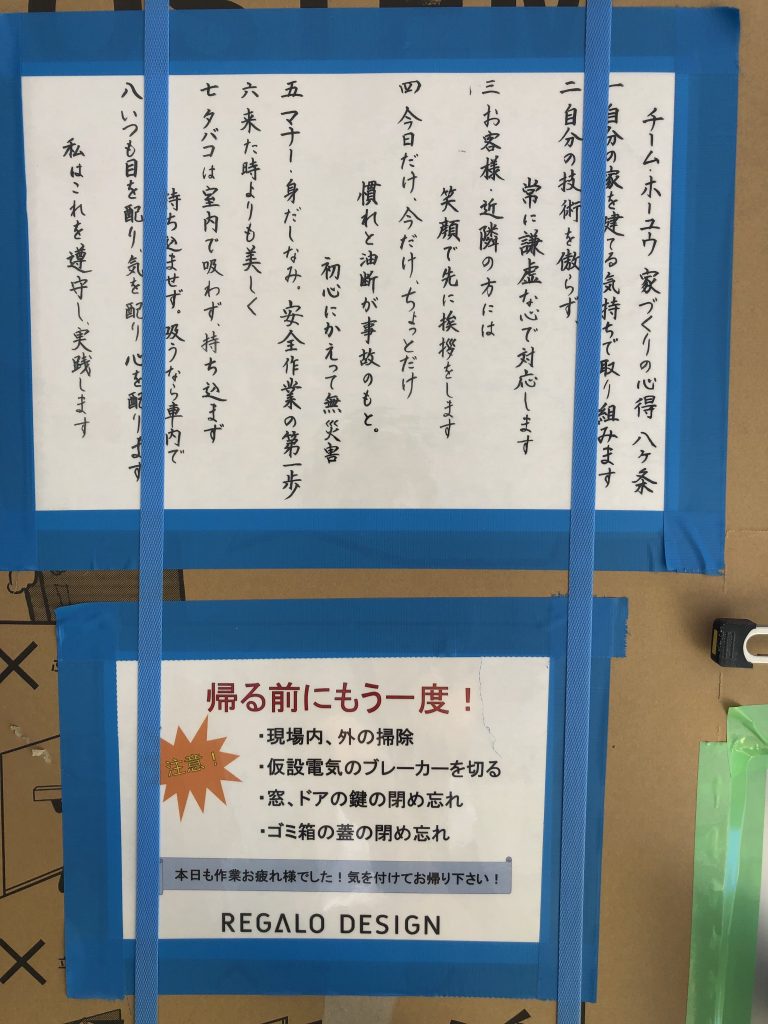 チーム・ホーユウ 家づくりの心得 八ヶ条
一 自分の家を建てる気持ちで取り組みます
二 自分の技術を傲らず、
常に謙虚な心で対応します
三 お客様・近隣の方には
笑顔で先に挨拶をします
四 今日だけ、今だけ、ちょっとだけ
慣れと油断が事故のもと。
初心にかえって無災害
五 マナー・身だしなみ。安全作業の第一歩
六 来た時よりも美しく
七 タバコは室内で吸わず、持ち込まず
持ち込ませず。吸うなら車内で
八 いつも目を配り、気を配り、心を配ります
私はこれを遵守し、実践します
帰る前にもう一度！
注意！
・現場内、外の掃除
・仮設電気のブレーカーを切る
・窓、ドアの鍵の閉め忘れ
・ゴミ箱の蓋の閉め忘れ
本日も作業お疲れ様でした！気を付けてお帰り下さい！
REGALO DESIGN